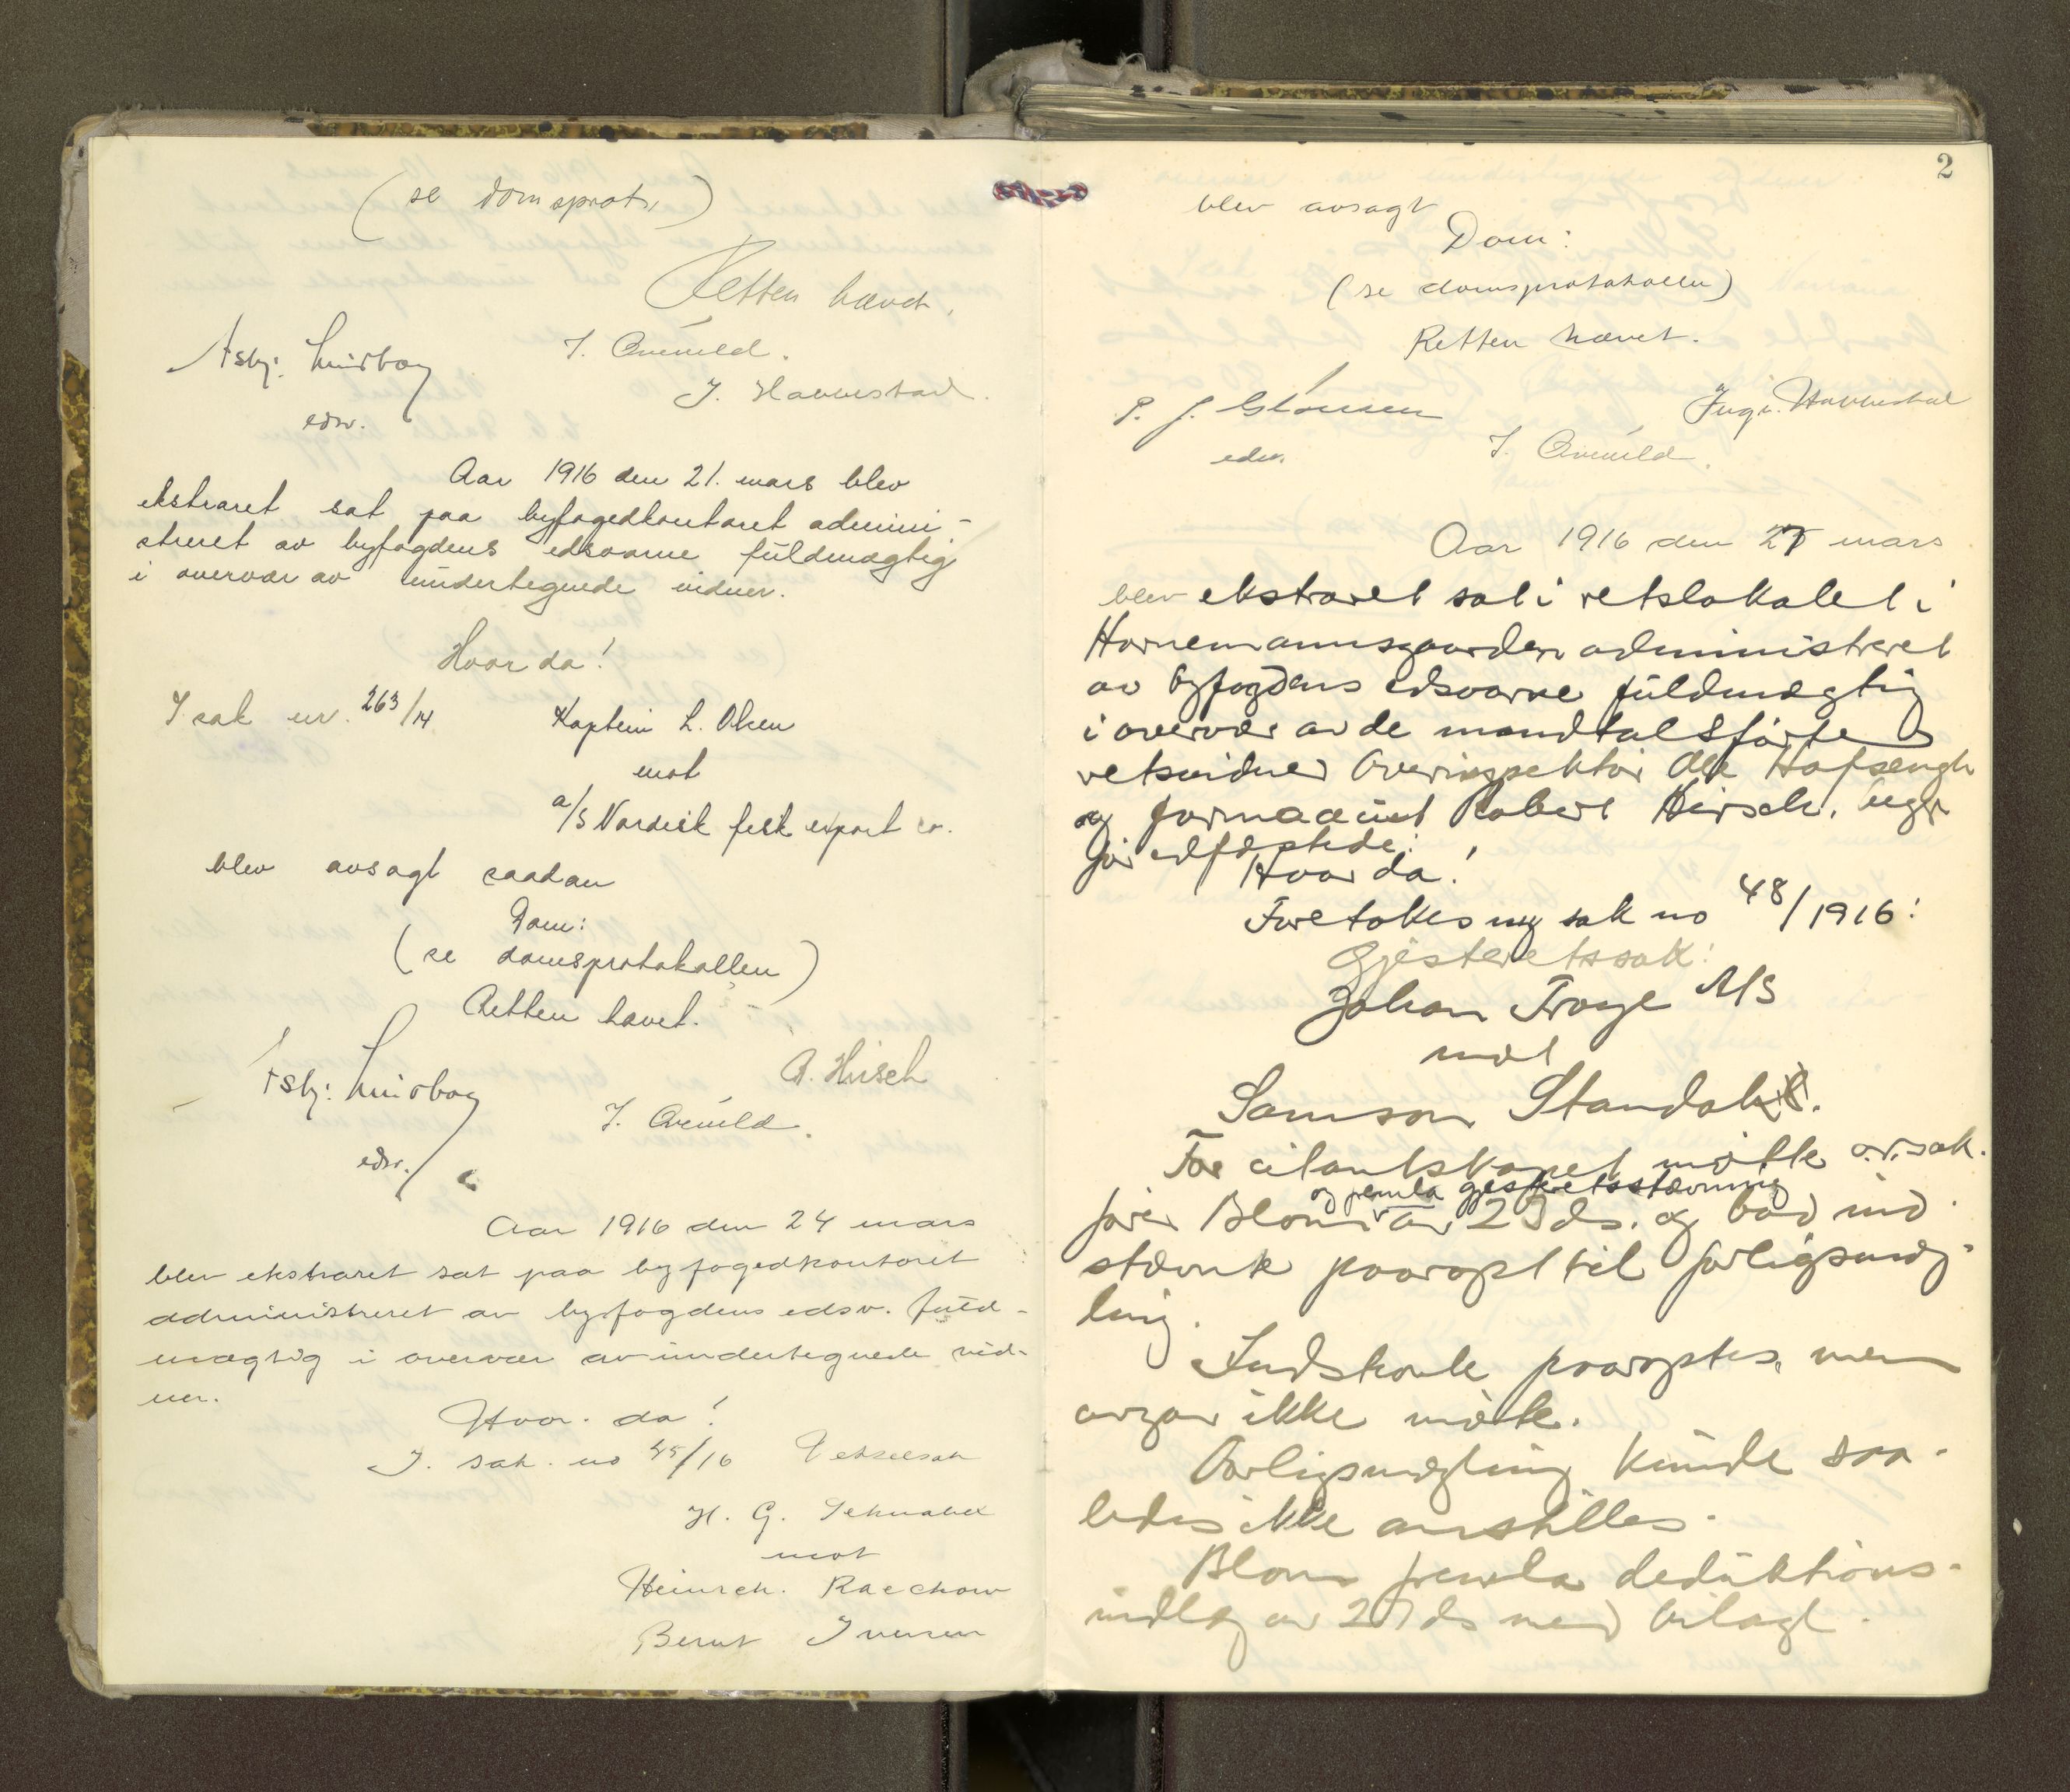 (se domsprot.)
Retten hævet.
Asbj: Lindbog
edsv.
J. Arveuld.
J. Havnestad.
Aar 1916 den 21. mars blev
ekstraret sat paa byfogedkontoret admini-
streret av byfogdens edsvorne fuldmægtig
i overvær av undertegnede vidner.
Hvor da!
I sak nr. 263/14 Kaptein L. Olsen
mot
a/s Nordisk fisk export co.
blev avsagt saadan
Dom:
(se domsprotokollen)
Retten hævet.
Asbj: Lindbog
edsv.
R. Hirsch
Aar 1916 den 24 mars
blev ekstraret sat paa byfogedkontoret
administreret av byfogdens edsv. fuld-
mægtig i overvær av undertegnede vid-
ner.
Hvor da!
I. sak. no 45/16 Vekselsak
H. G. Schnabel
mot
Heinrch. Raechow
Bernt Iversen
2
blev avsagt
Dom:
(se domsprotokollen)
Retten hævet.
P. J.
edsv.
Aar 1916 den 27 mars
blev ekstraret sat i retslokalet i
Hornemannsgaarden administreret
av byfogdens edsvorne fuldmægtig
i overvær av de mandtalsførte
retsvidner Overinspektør Ole
og Robert Hirsch, begge
før edfæstede.
Hvor da!
Foretokes ny sak no 48/1916:
Gjesteretssak:
Johan Troye A/S
mot
Samson Standal.
For citantskapet møtte o.r.sak-
fører Blom og fremla gjesteretsstævning
av 23 ds. og bad ind-
stævnte paaropt til forligsmæg-
ling.
Indstevnte paaroptes, men
avgav ikke møte.
Forligsmægling kunde saa-
ledes ikke anstilles.
Blom fremla deduktions-
indlæg av 27 ds med bilagt.